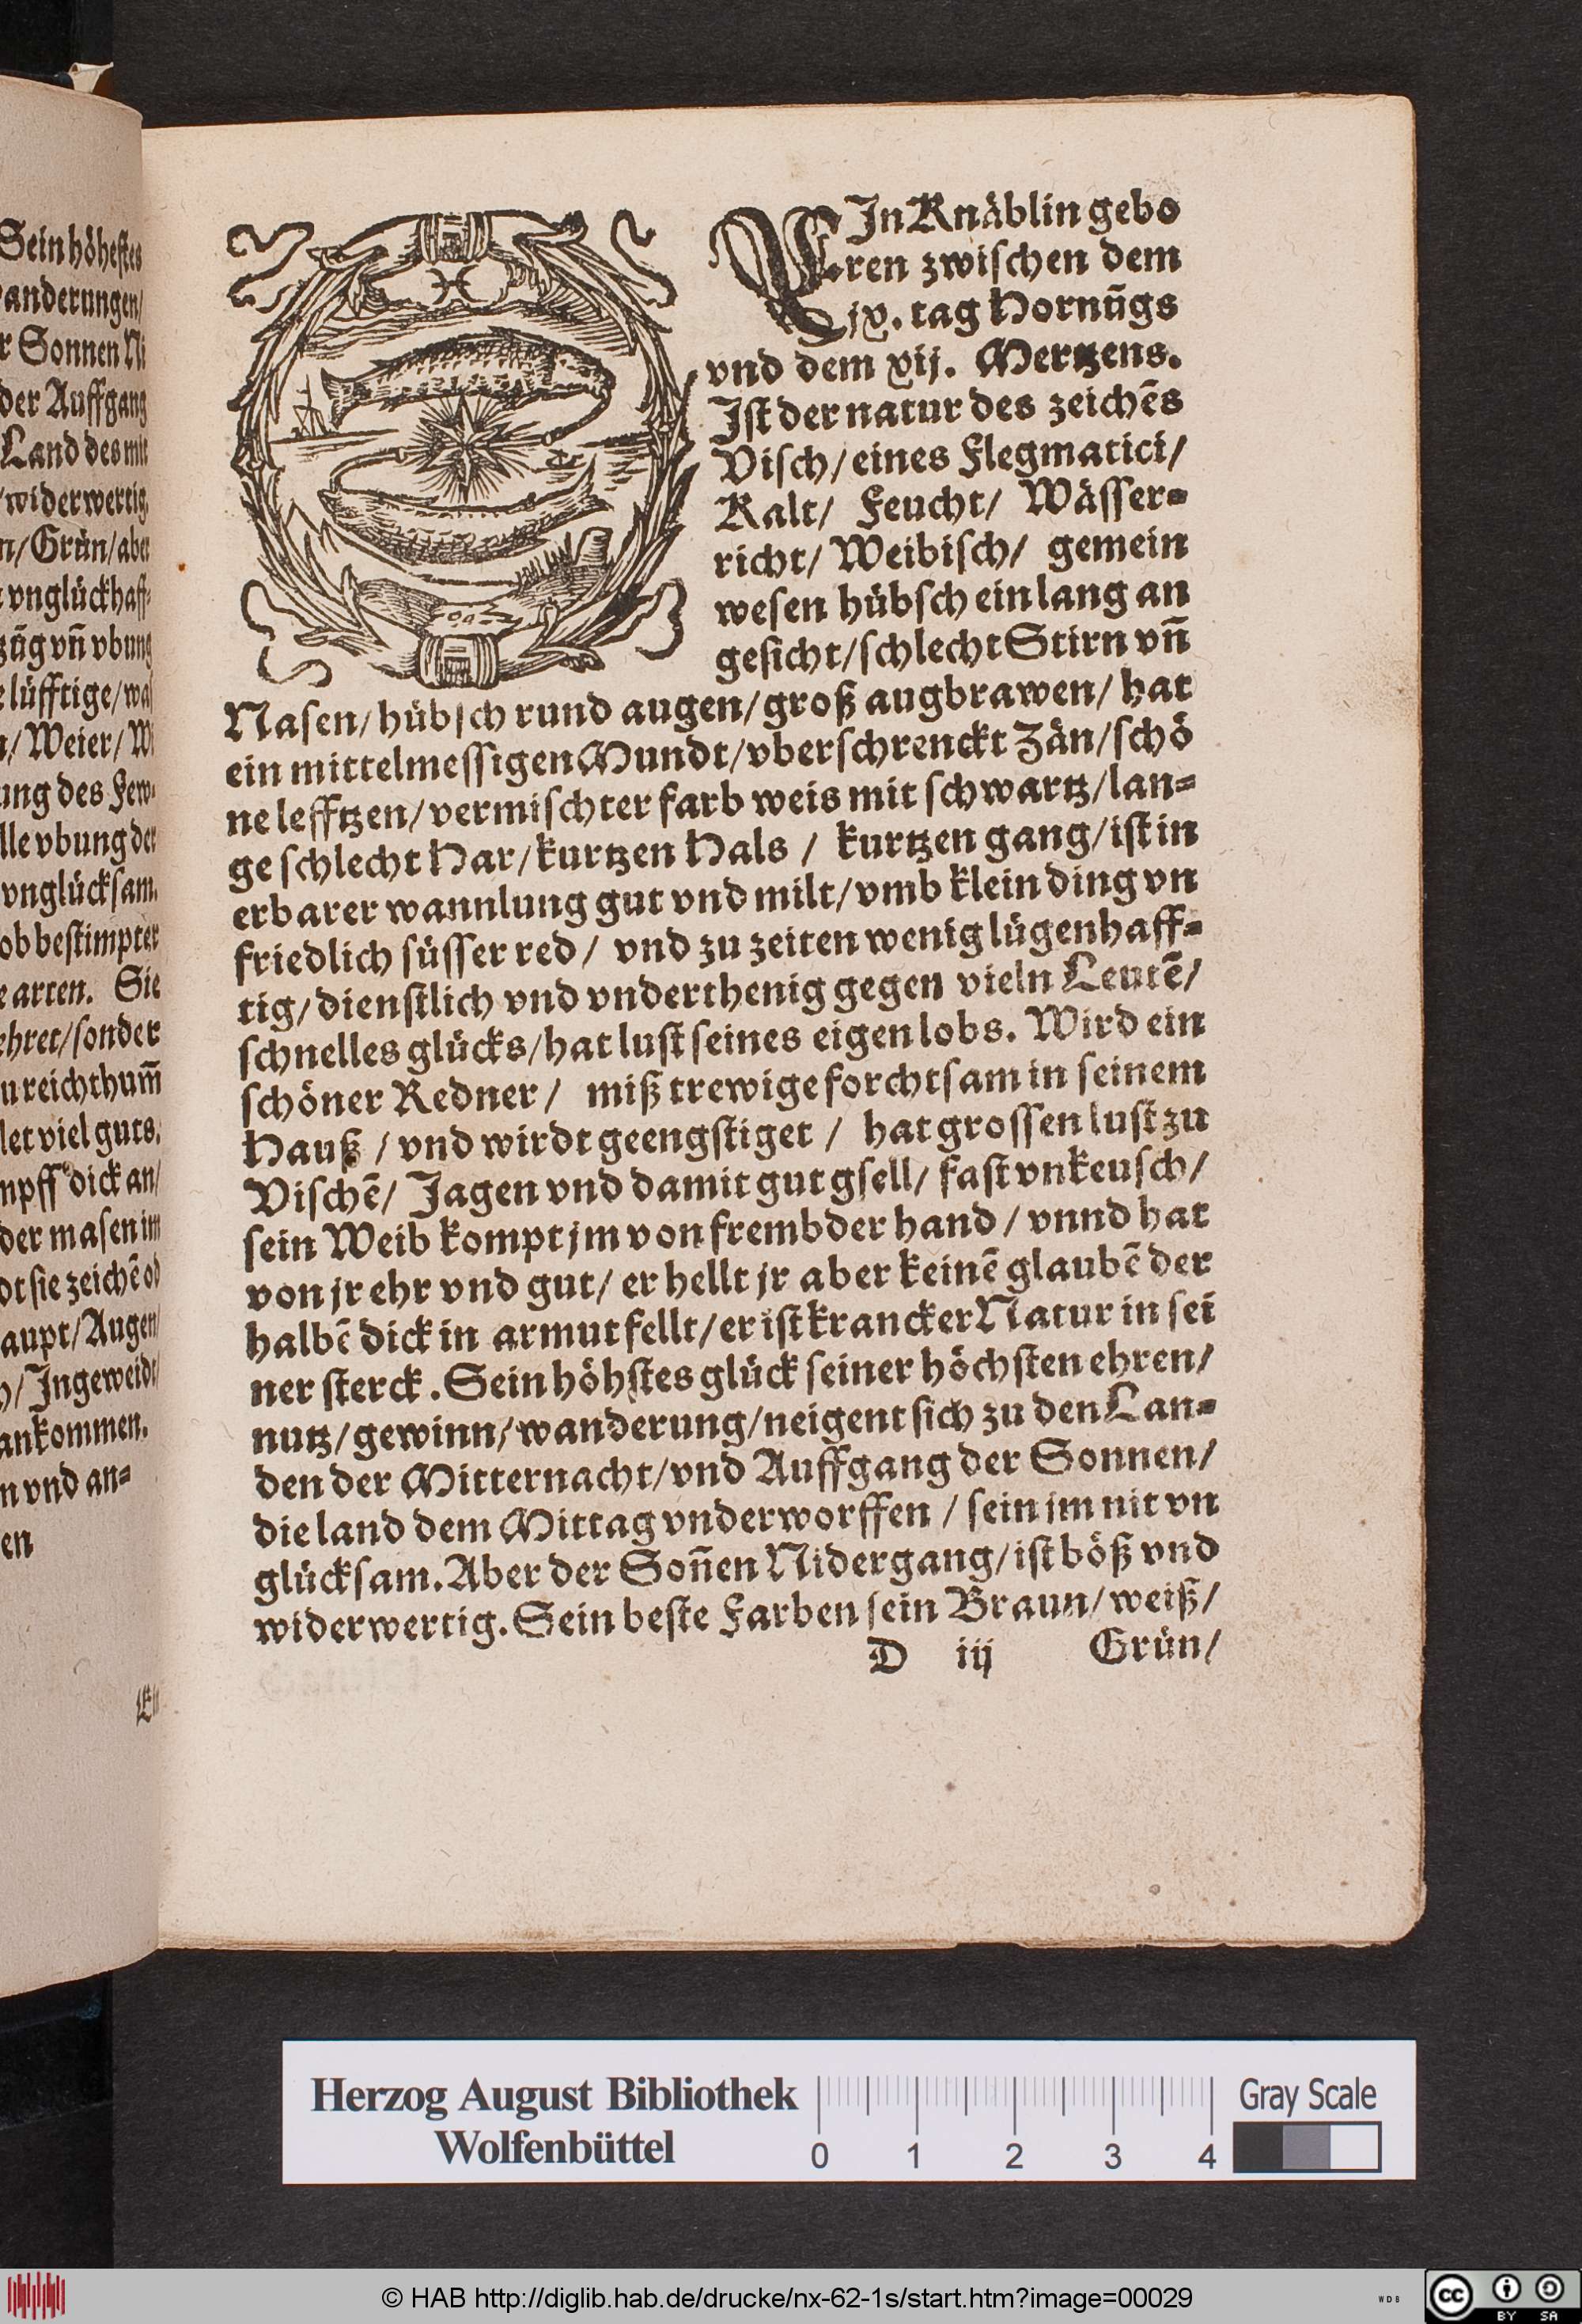 Sein höhestes
anderungen/
r Sonnen Ni
der Auffgang
Land des mit
/widerwertig
n/Grün/aber
vnglückhaff-
zūg vn̄ vbung
lüfftige/was
/Weier/Wi
ung des Few-
lle vbung der
vnglücksam.
ob bestimpter
e arten. Sie
ehret/sonder
u reichthum̄
let viel guts.
mpff dick an/
der masen im
dt sie zeichē ob
aupt/Augen/
h/Ingeweidt/
ankommen.
n vnd an-
en
Ein
EIn Knäblin gebo
ren zwischen dem
ix. tag Hornūgs
vnd dem xij. Mertzens.
Ist der natur des zeichēs
Visch/eines Flegmatici/
Kalt/ Feucht/ Wässer-
richt/ Weibisch/ gemein
wesen hübsch ein lang an
gesicht/schlecht Stirn vn̄
Nasen/hübsch rund augen/groß augbrawen/hat
ein mittelmessigen Mundt/vberschrenckt Zän/schö
ne lefftzen/vermischter farb weis mit schwartz/lan-
ge schlecht Har/kurtzen Hals / kurtzen gang/ist in
erbarer wannlung gut vnd milt/vmb klein ding vn
friedlich süsser red/ vnd zu zeiten wenig lügenhaff-
tig/dienstlich vnd vnderthenig gegen vieln Leutē/
schnelles glücks/hat lust seines eigen lobs. Wird ein
schöner Redner/ miß trewige forchtsam in seinem
Hauß / vnd wirdt geengstiget / hat grossen lust zu
Vischē/ Jagen vnd damit gut gsell/ fast vnkeusch/
sein Weib kompt jm von frembder hand/ vnnd hat
von jr ehr vnd gut/ er hellt jr aber keinē glaubē der
halbē dick in armut fellt/er ist krancker Natur in sei
ner sterck. Sein höhstes glück seiner höchsten ehren/
nutz/gewinn/wanderung/neigent sich zu den Lan-
den der Mitternacht/vnd Auffgang der Sonnen/
die land dem Mittag vnderworffen / sein jm nit vn
glücksam. Aber der Son̄en Nidergang/ist böß vnd
widerwertig. Sein beste Farben sein Braun/weiß/
D iij Grün/
Herzog August Bibliothek
Wolfenbüttel
0 1 2 3 4
Gray Scale
© HAB http://diglib.hab.de/drucke/nx-62-1s/start.htm?image=00029
WDB
cc BY SA